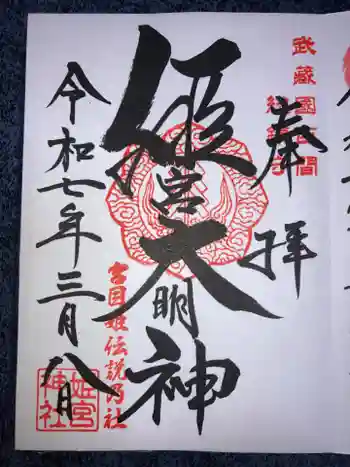 奉拝
武蔵國百間
姫宮大明神
宮目姫伝説乃社
令和七年三月八日
姫宮神社